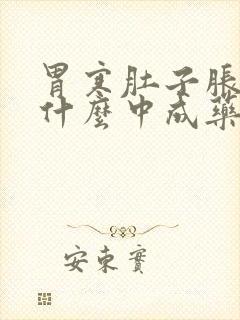 胃寒肚子脹
什麼中成藥
安東賓